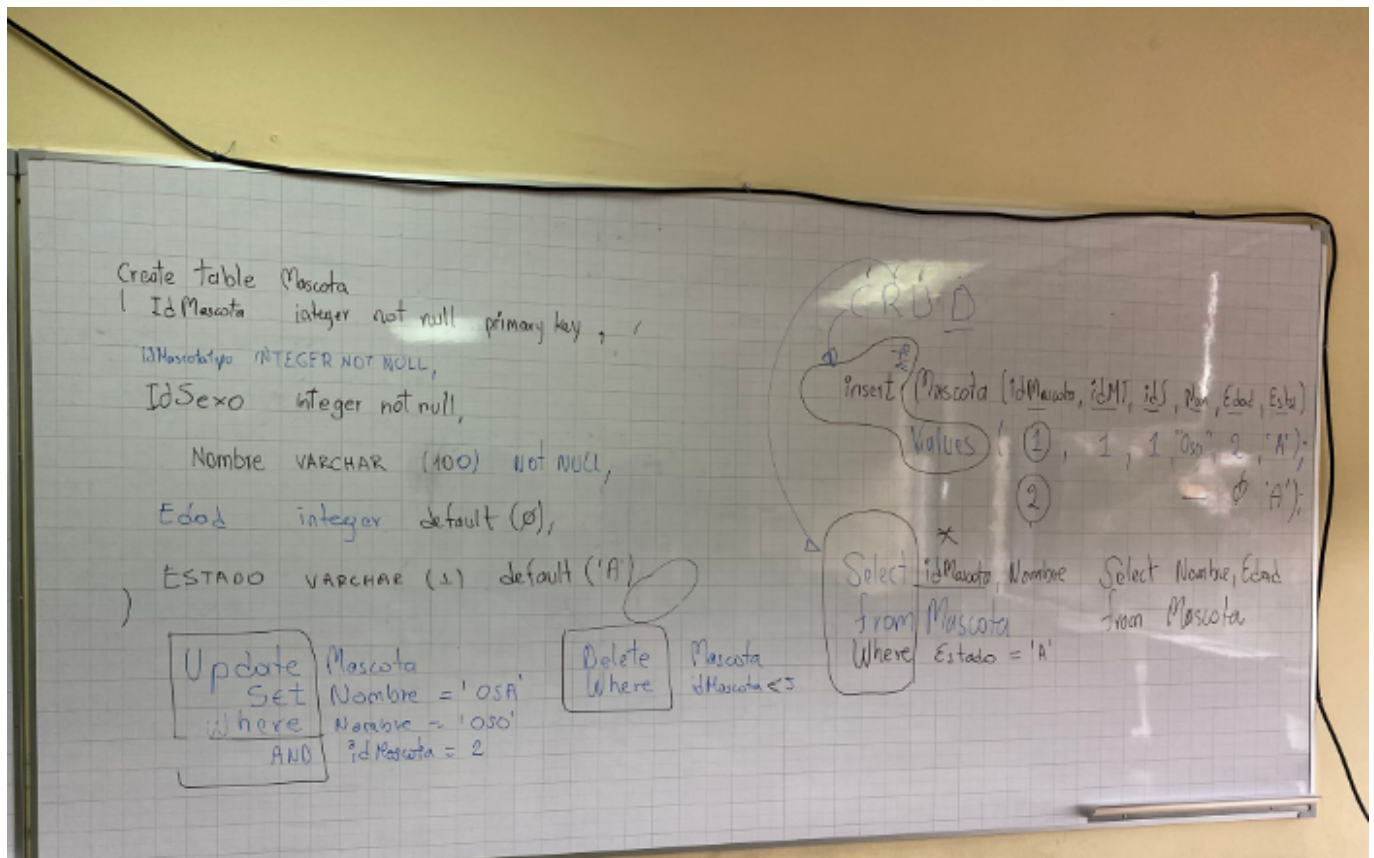 Create table Mascota
( IdMascota integer not null primary key,
idMascotaTipo INTEGER NOT NULL,
IdSexo integer not null,
Nombre VARCHAR (100) NOT NULL,
Edad integer default (Ø),
ESTADO VARCHAR (1) default ('A')
)
Update Mascota
Set Nombre = 'OSA'
Where Nombre = 'OSO'
AND idMascota = 2
Delete Mascota
Where idMascota <5
CRUD
insert INTO Mascota (idMascota, idMT, idS, Nom, Edad, Esta)
Values ( 1, 1, 1, "Oso", 2, 'A');
2 — Ø 'A');
*
Select idMascota, Nombre
from Mascota
Where Estado = 'A'
Select Nombre, Edad
from Mascota